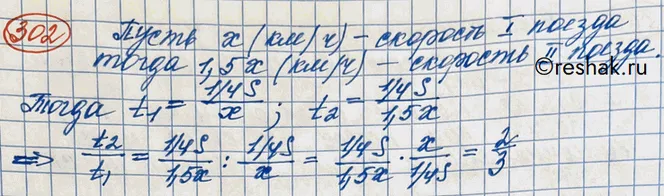 302 Пусть x (км/ч) – скорость I поезда
тогда 1,5x (км/ч) – скорость II поезда.
©reshak.ru
Тогда t₁ = 1/4S / x ; t₂ = 1/4S / 1,5x
⇒ t₂ / t₁ = 1/4S / 1,5x : 1/4S / x = 1/4S / 1,5x · x / 1/4S = 2/3